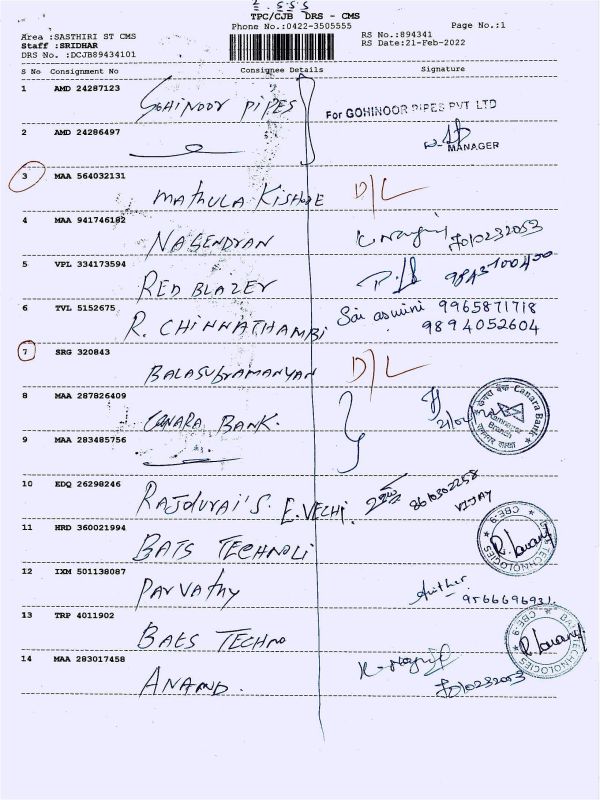 TPC/CJB DRS - CMS
Phone No.:0422-3505555
Page No.:1
Area :SASTHIRI ST CMS
Staff :SRIDHAR
DRS No. :DCJB89434101
RS No.:894341
RS Date:21-Feb-2022
S No Consignment No Consignee Details Signature
1 AMD 24287123 GOHINOOR PIPES
For GOHINOOR PIPES PVT LTD
MANAGER
2 AMD 24286497
3 MAA 564032131 MATHULA KISHORE D/L
4 MAA 941746182 NAGENDRAN 7010232053
5 VPL 334173594 RED BLAZER 9843100400
6 TVL 5152675 R. CHINNATHAMBI Sai aswini 9965871718
9894052604
7 SRG 320843 BALASUBRAMANYAN D/L
8 MAA 287826409 CANARA BANK.
Canara Bank
Branch
9 MAA 283485756
10 EDQ 26298246 RAJDURAI'S. E.VELHI. 8610302258
VIJAY
11 HRD 360021994 BATS TECHNOLI
TECHNOLOGIES
CBE-9
12 IXM 501138087 PARVATHY 9566696931.
13 TRP 4011902 BAES TECHNO
TECHNOLOGIES
CBE-9
14 MAA 283017458 ANAND. 7010232053